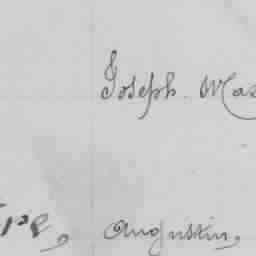 Joseph Mas
Augustin,